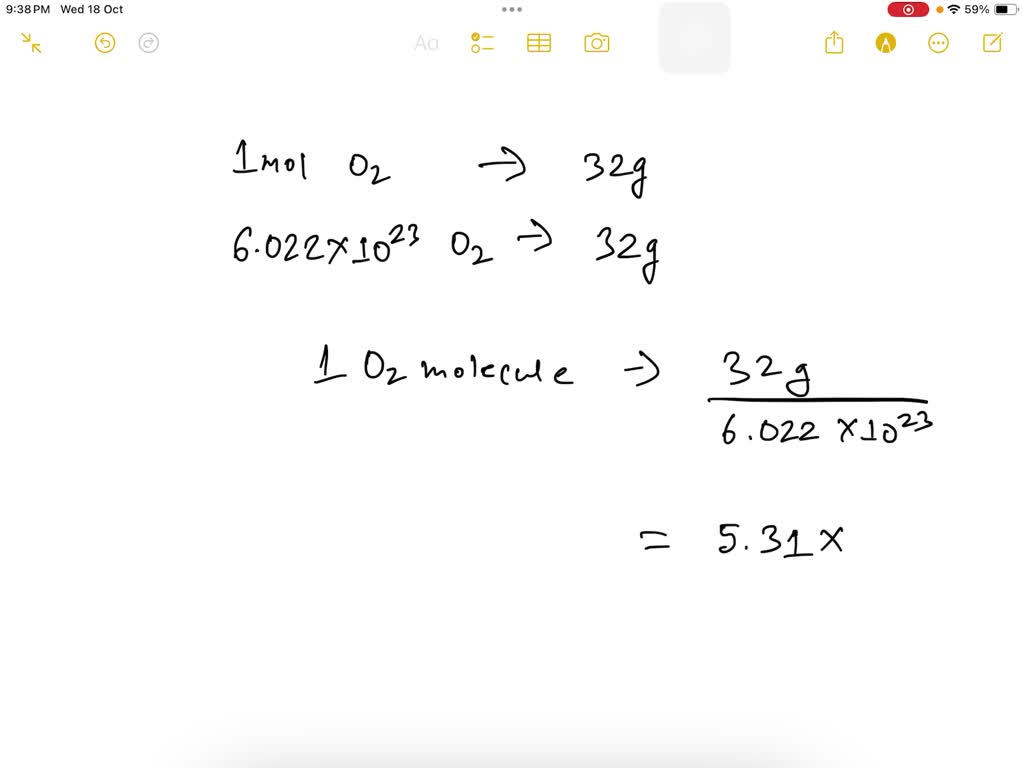 9:38 PM Wed 18 Oct 59%
Aa
1 mol O₂ → 32g
6.022×10²³ O₂ → 32g
1 O₂ molecule → 32g
6.022 ×10²³
= 5.31×